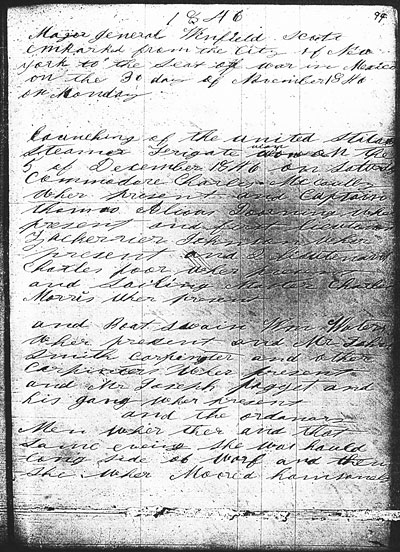 1846 99
Major General Winfield Scott
embarked from the City of New
york to the Seat of war in Mexico
on the 30 day of November 1846
on Monday
Launching of the united States
Steamer Frigate on the
5 of December 1846 on
Commodore Charles
Wher present and Captain
thomas Downing wher
present and first lieutenant
Johnson wher
present and 2 Lieutenant
Charles poor wher present
and Sailing Master Charles
Morris wher present
and Boat Swain Wm Waters
wher present and Mr John
Smith Carpingter and other
Carpinters Wher present
and Mr Joseph and
his gang wher present
and the ordanary
Men wher ther and that
same eveing She was hauld
long side of Worf and then
She wher Moored